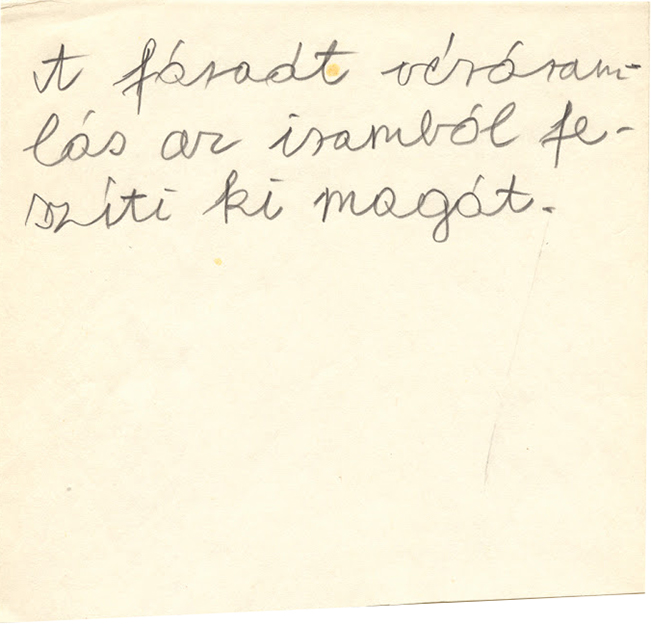 A fáradt véráram-
lás az iramból fe-
szíti ki magát.